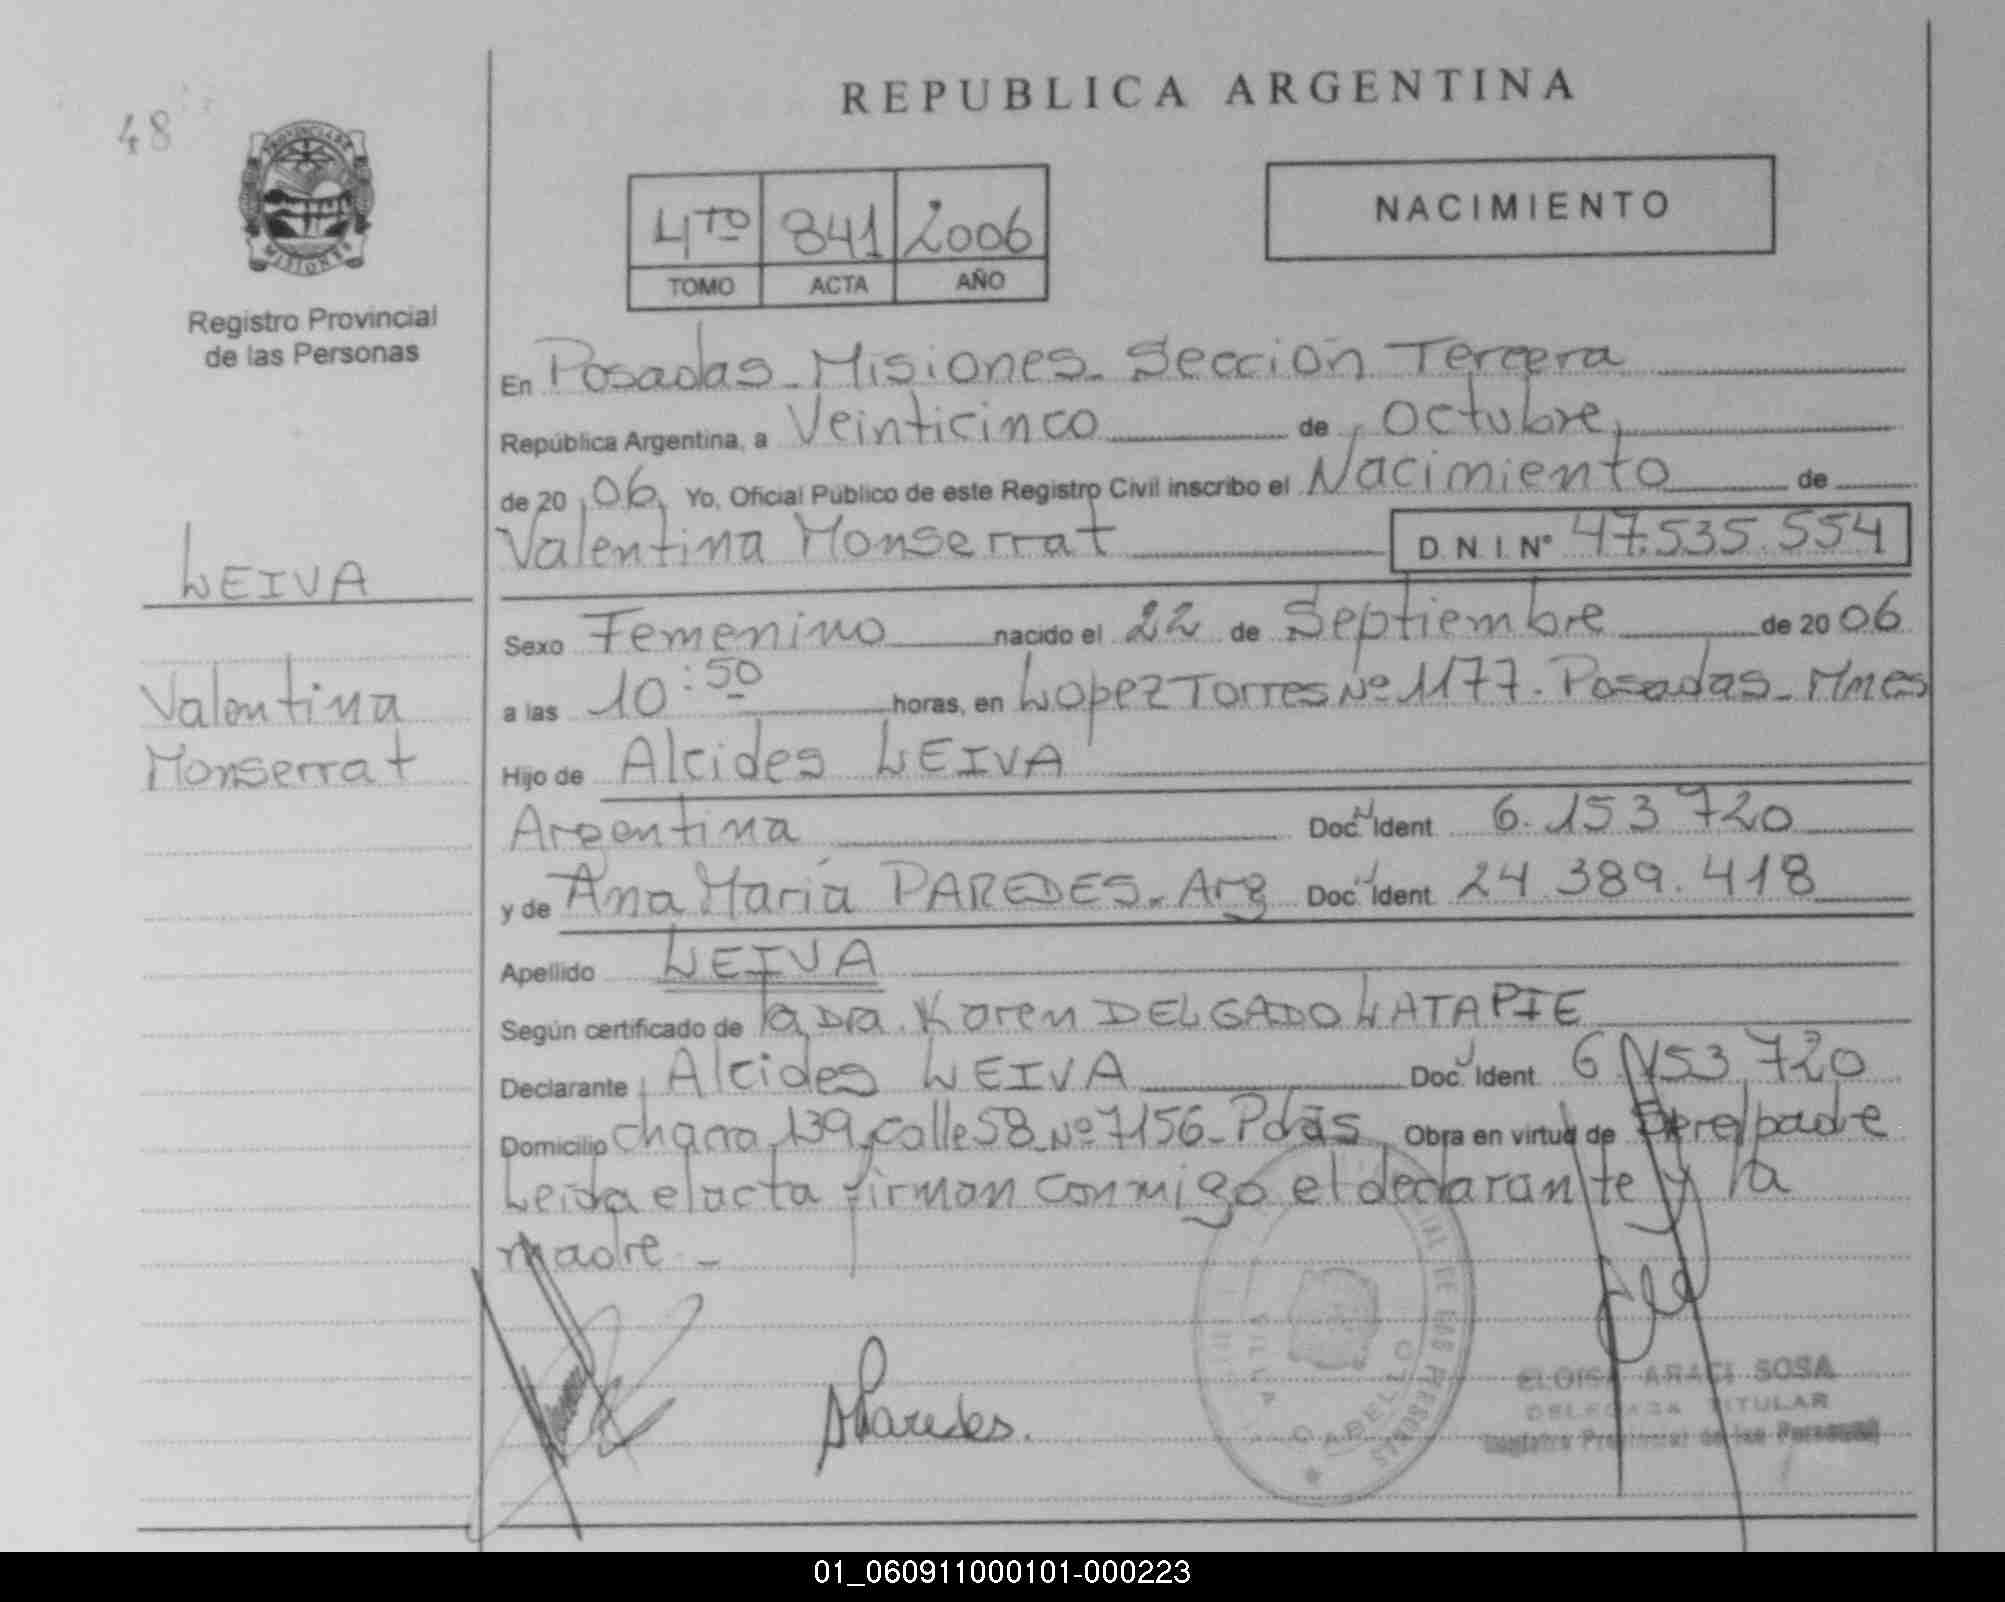 48
PROVINCIA DE
MISIONES
Registro Provincial
de las Personas
LEIVA
Valentina
Monserrat
REPUBLICA ARGENTINA
4TO 841 2006
TOMO ACTA AÑO
NACIMIENTO
En Posadas - Misiones - Sección Tercera
República Argentina, a Veinticinco de Octubre,
de 20 06, Yo, Oficial Público de este Registro Civil inscribo el Nacimiento de
Valentina Monserrat D.N.I. Nº 47.535.554
Sexo Femenino nacido el 22 de Septiembre de 20 06
a las 10:50 horas, en Lopez Torres Nº 1177. Posadas - Mnes
Hijo de Alcides LEIVA
Argentina Doc. Ident 6.153.720
y de Ana María PAREDES. Arg Doc. Ident 24.389.418
Apellido LEIVA
Según certificado de la Dra. Karen DELGADO LATAPIE
Declarante Alcides LEIVA Doc. Ident 6.153.720
Domicilio chacra 139, calle 58 Nº 7156 - Pdas Obra en virtud de Ser el padre
Leida el acta firman conmigo el declarante y la
madre -
AParedes.
VILLA CABELLO
DE LAS PERSONAS
ELOISA ARACI SOSA
DELEGADA TITULAR
Registro Provincial de las Personas
01_060911000101-000223